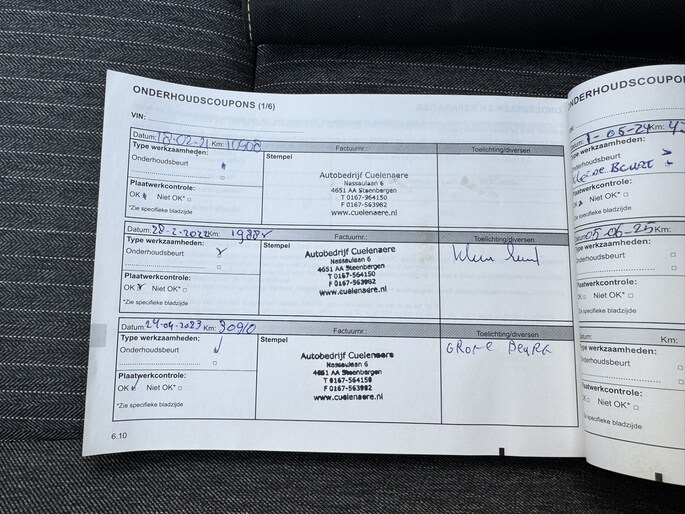 ONDERHOUDSCOUPONS (1/6)
VIN:
Datum: 18-02-21 Km: 10908 Factuurnr.: Toelichting/diversen
Type werkzaamheden: Stempel
Onderhoudsbeurt
Plaatwerkcontrole:
OK Niet OK* □
*Zie specifieke bladzijde
Autobedrijf Cuelenaere
Nassaulaan 6
4651 AA Steenbergen
T 0167-564150
F 0167-563982
www.cuelenaere.nl
Datum: 28-2-2022 Km: Factuurnr.: Toelichting/diversen
Type werkzaamheden: Stempel
Onderhoudsbeurt
Plaatwerkcontrole:
OK Niet OK* □
*Zie specifieke bladzijde
Autobedrijf Cuelenaere
Nassaulaan 6
4651 AA Steenbergen
T 0167-564150
F 0167-563982
www.cuelenaere.nl
Datum: 24-04-2023 Km: 30910 Factuurnr.: Toelichting/diversen
Type werkzaamheden: Stempel
Onderhoudsbeurt
Plaatwerkcontrole:
OK Niet OK* □
*Zie specifieke bladzijde
Autobedrijf Cuelenaere
Nassaulaan 6
4651 AA Steenbergen
T 0167-564150
F 0167-563982
www.cuelenaere.nl
GROTE BEURT
6.10
ONDERHOUDSCOUPONS
Datum: -05-24 Km:
Type werkzaamheden:
Onderhoudsbeurt
KLEINE BEURT
Plaatwerkcontrole:
OK Niet OK* □
*Zie specifieke bladzijde
Datum: 05-06-25 Km:
Type werkzaamheden:
Onderhoudsbeurt
Plaatwerkcontrole:
OK Niet OK* □
*Zie specifieke bladzijde
Datum: Km:
Type werkzaamheden:
Onderhoudsbeurt □
Plaatwerkcontrole:
OK □ Niet OK* □
*Zie specifieke bladzijde